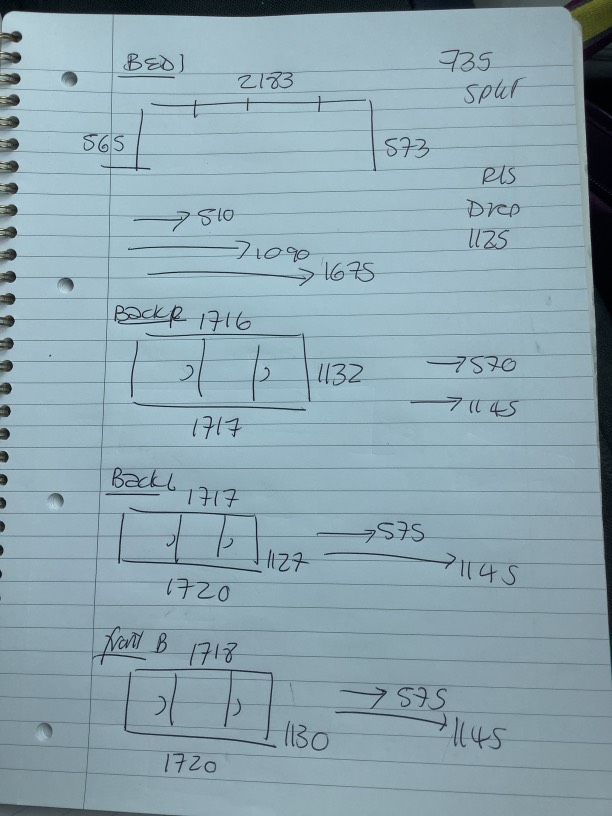 BED1
735
2183
Split
565
573
R/S
Drop
1125
→ 510
→ 1090
→ 1675
Back R
1716
1132
→ 570
→ 1145
1717
Back L
1717
→ 575
1127
→ 1145
1720
front B
1718
→ 575
1130
→ 1145
1720